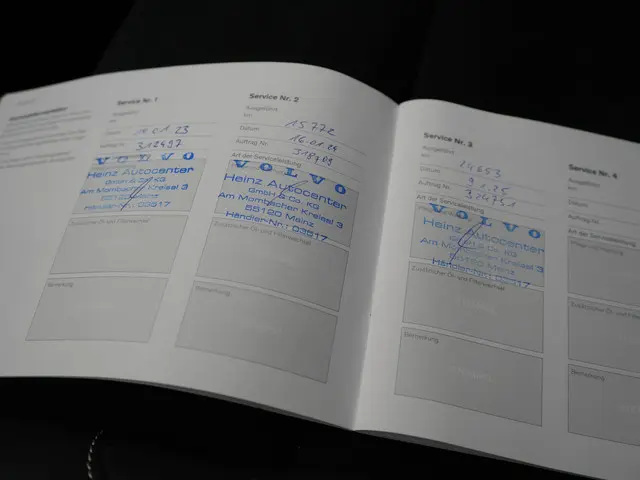 Service Nr. 1
Ausgeführt
km
Datum 19.01.23
Auftrag Nr. 312497
VOLVO
Heinz Autocenter
GmbH & Co. KG
Am Mombacher Kreisel 3
55120 Mainz
Händler-Nr.: 03517
Zusätzlicher Öl- und Filterwechsel
Bemerkung
Service Nr. 2
Ausgeführt
km 15772
Datum 16.01.24
Auftrag Nr. 318709
Art der Serviceleistung
VOLVO
Heinz Autocenter
GmbH & Co. KG
Am Mombacher Kreisel 3
55120 Mainz
Händler-Nr.: 03517
Zusätzlicher Öl- und Filterwechsel
Bemerkung
Service Nr. 3
Ausgeführt
km 24653
Datum
Auftrag Nr.
Art der Serviceleistung
VOLVO
Heinz Autocenter
GmbH & Co. KG
Am Mombacher Kreisel 3
55120 Mainz
Händler-Nr.: 03517
Zusätzlicher Öl- und Filterwechsel
Bemerkung
Service Nr. 4
Ausgeführt
km
Datum
Auftrag Nr.
Art der Serviceleistung
Zusätzlicher Öl- und Filterwechsel
Bemerkung